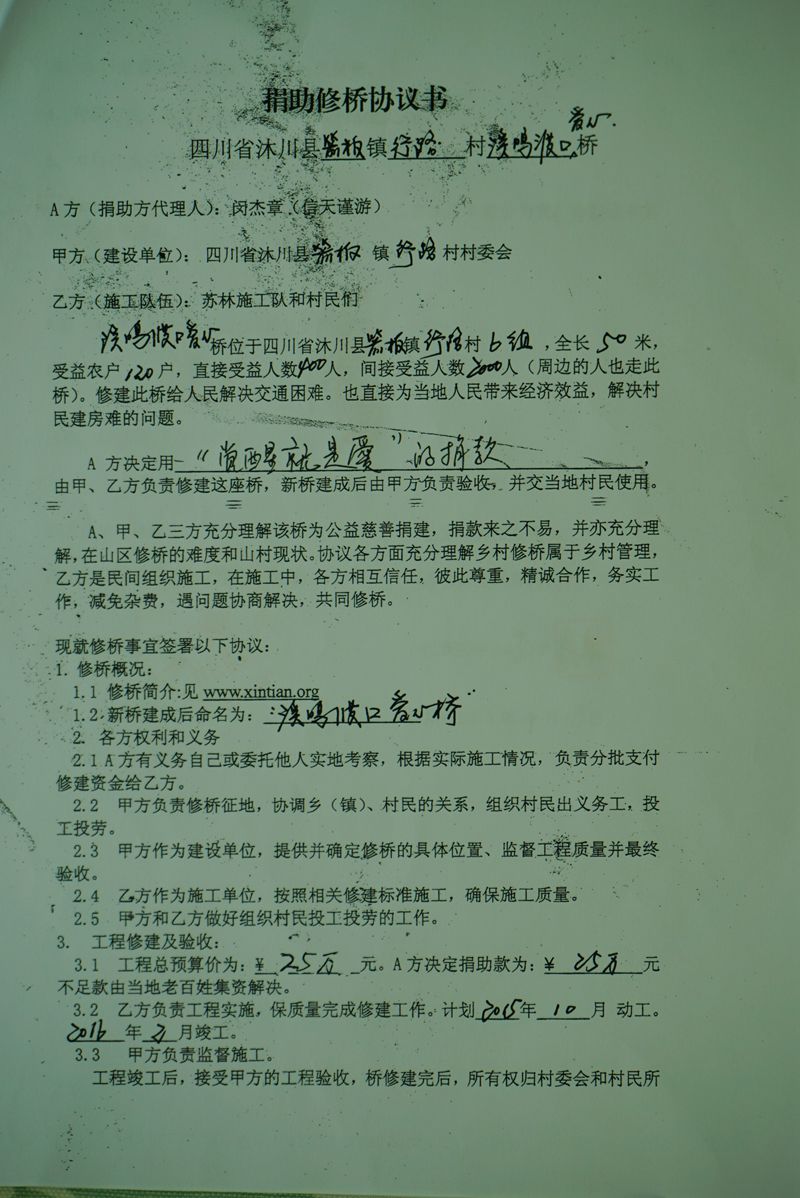 捐助修桥协议书
爱心
四川省沐川县箭板镇行路村溪鸣渡口桥
A方（捐助方代理人）：闵杰章（信天谨游）
甲方（建设单位）：四川省沐川县箭板镇行路村村委会
乙方（施工队伍）：苏林施工队和村民们
溪鸣渡口爱心桥位于四川省沐川县箭板镇行路村6组，全长50米，
受益农户120户，直接受益人数400人，间接受益人数2000人（周边的人也走此
桥）。修建此桥给人民解决交通困难。也直接为当地人民带来经济效益，解决村
民建房难的问题。
A 方决定用“觉醒就是爱”的捐款，
由甲、乙方负责修建这座桥，新桥建成后由甲方负责验收，并交当地村民使用。
A、甲、乙三方充分理解该桥为公益慈善捐建，捐款来之不易，并亦充分理
解，在山区修桥的难度和山村现状。协议各方面充分理解乡村修桥属于乡村管理，
乙方是民间组织施工，在施工中，各方相互信任，彼此尊重，精诚合作，务实工
作，减免杂费，遇问题协商解决，共同修桥。
现就修桥事宜签署以下协议：
1. 修桥概况：
1.1 修桥简介:见 www.xintian.org
1.2 新桥建成后命名为：溪鸣渡口爱心桥
2. 各方权利和义务
2.1 A方有义务自己或委托他人实地考察，根据实际施工情况，负责分批支付
修建资金给乙方。
2.2 甲方负责修桥征地，协调乡（镇）、村民的关系，组织村民出义务工，投
工投劳。
2.3 甲方作为建设单位，提供并确定修桥的具体位置、监督工程质量并最终
验收。
2.4 乙方作为施工单位，按照相关修建标准施工，确保施工质量。
2.5 甲方和乙方做好组织村民投工投劳的工作。
3. 工程修建及验收：
3.1 工程总预算价为：¥ 25万 元。A方决定捐助款为：¥ 25万 元
不足款由当地老百姓集资解决。
3.2 乙方负责工程实施，保质量完成修建工作。计划2015年10月 动工。
2016年2月竣工。
3.3 甲方负责监督施工。
工程竣工后，接受甲方的工程验收，桥修建完后，所有权归村委会和村民所